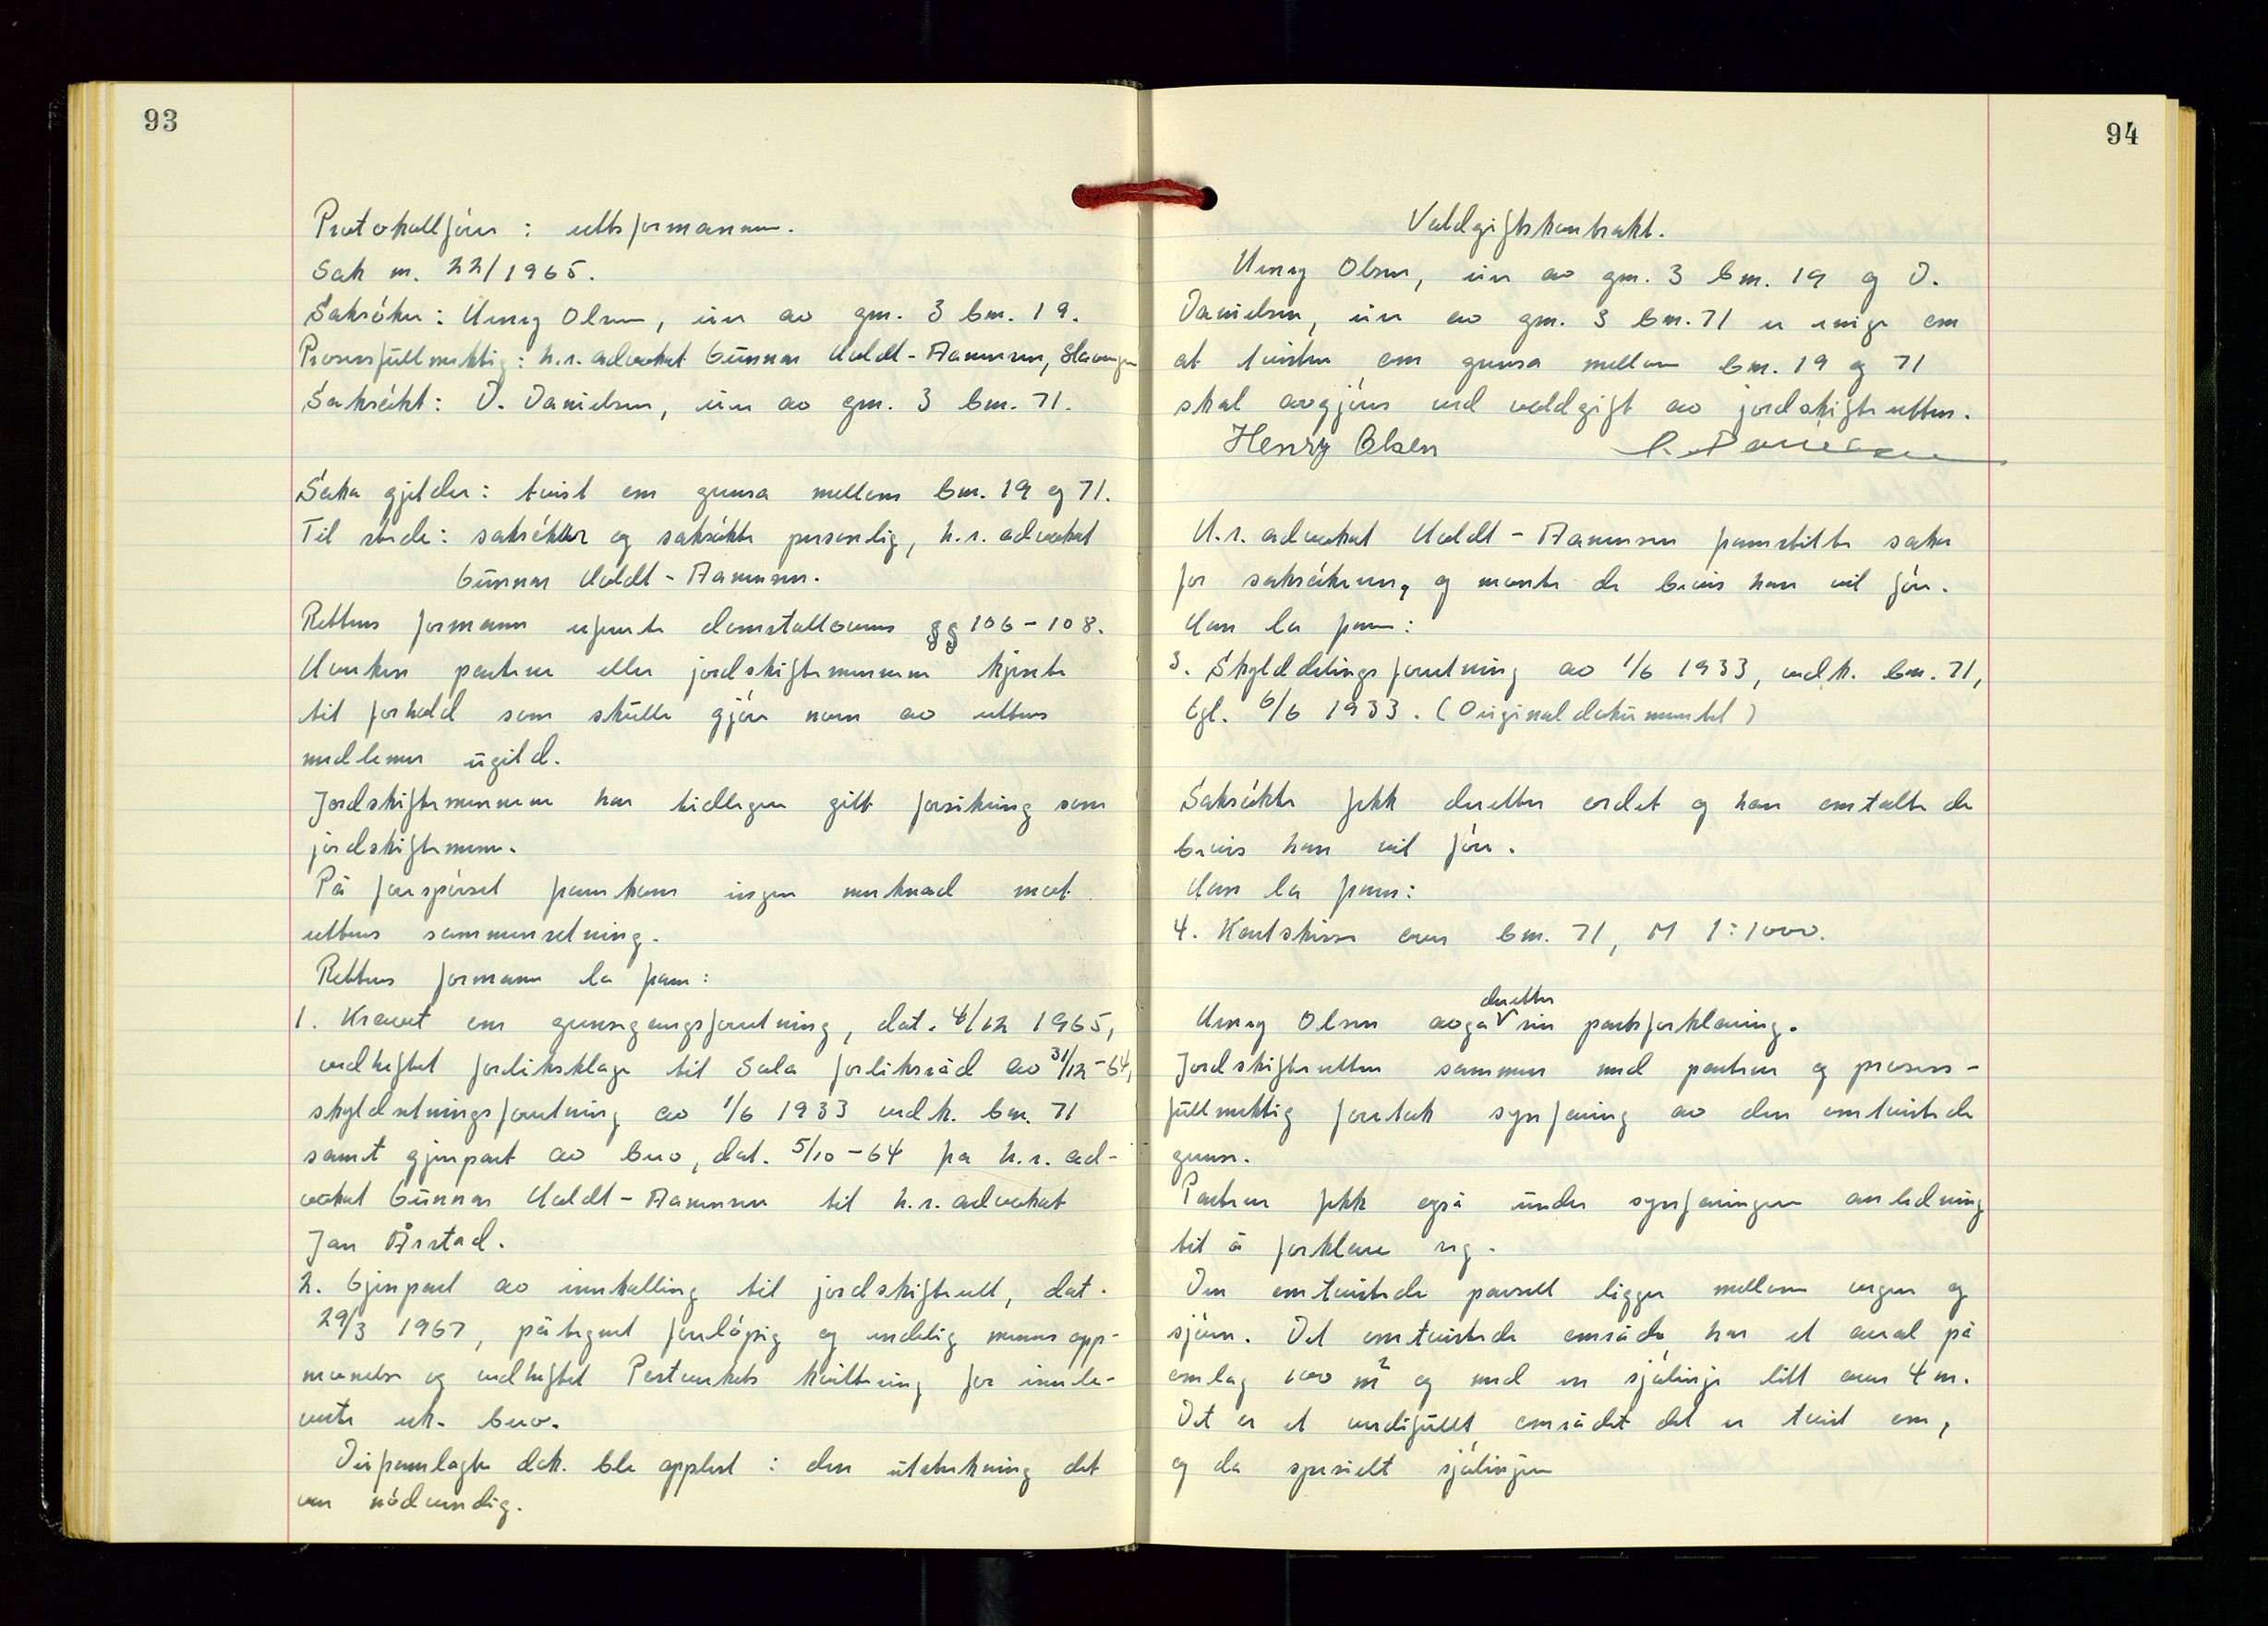 93
Protokollfører: rettsformannen.
Sak nr. 22/1965.
Saksøker: Henry Olsen, eier av gnr. 3 bnr. 19.
Prosessfullmektig: h.r. advokat Gunnar Holdt-Aanensen, Stavanger
Saksøkt: O. Danielsen, eier av gnr. 3 bnr. 71.
Saka gjelder: tvist om grensa mellom bnr. 19 og 71.
Til stede: saksøker og saksøkte personlig, h.r. advokat
Gunnar Holdt-Aanensen.
Rettens formann refererte domstollovens §§ 106-108.
Hverken partene eller jordskiftemennene kjente
til forhold som skulle gjøre noen av rettens
medlemer ugild.
Jordskiftemennene har tidlegere gitt forsikring som
jordskiftemenn.
På forespørsel framkom ingen merknad mot
rettens sammensetning.
Rettens formann la fram:
1. Kravet om grensegangsforretning, dat. 4/12 1965,
vedheftet forliksklage til Sola forliksråd av 31/12-64,
skyldsetningsforretning av 1/6 1933 vedk. bnr. 71
samt gjenpart av brev, dat. 5/10-64 fra h.r. ad-
vokat Gunnar Holdt-Aanensen til h.r. advokat
Jan Årstad.
2. Gjenpart av innkalling til jordskifterett, dat.
29/3 1967, påtegnet foreløpig og endelig mannsopp-
nevnelse og vedheftet Postverkets kvittering for innle-
verte rek. brev.
De framlagte dok. ble opplest i den utstrekning det
var nødvendig.
94
Voldgiftskontrakt.
Henry Olsen, eier av gnr. 3 bnr. 19 og O.
Danielsen, eier av gnr. 3 bnr. 71 er enige om
at tvisten om grensa mellom bnr. 19 og 71
skal avgjøres ved voldgift av jordskifteretten.
Henry Olsen O. Danielsen
H.r. advokat Holdt-Aanensen framstilte saka
for saksøkeren, og nevnte de bevis han vil føre.
Han la fram:
3. Skylddelingsforretning av 1/6 1933, vedk. bnr. 71,
tgl. 6/6 1933. (Originaldokumentet)
Saksøkte fekk deretter ordet og han omtalte de
bevis han vil føre.
Han la fram:
4. Kartskisse over bnr. 71, M 1:1000.
Henry Olsen avga deretter sin partsforklaring.
Jordskifteretten sammen med partene og prosess-
fullmektig foretok synfaring av den omtvistede
grense.
Partene fekk også under synfaringen anledning
til å forklare seg.
Den omtvistede parsell ligger mellom vegen og
sjøen. Det omtvistede område har et areal på
omlag 100 m2 og med en sjølinje litt over 4 m.
Det er et verdifullt området det er tvist om,
og da spesielt sjølinjen